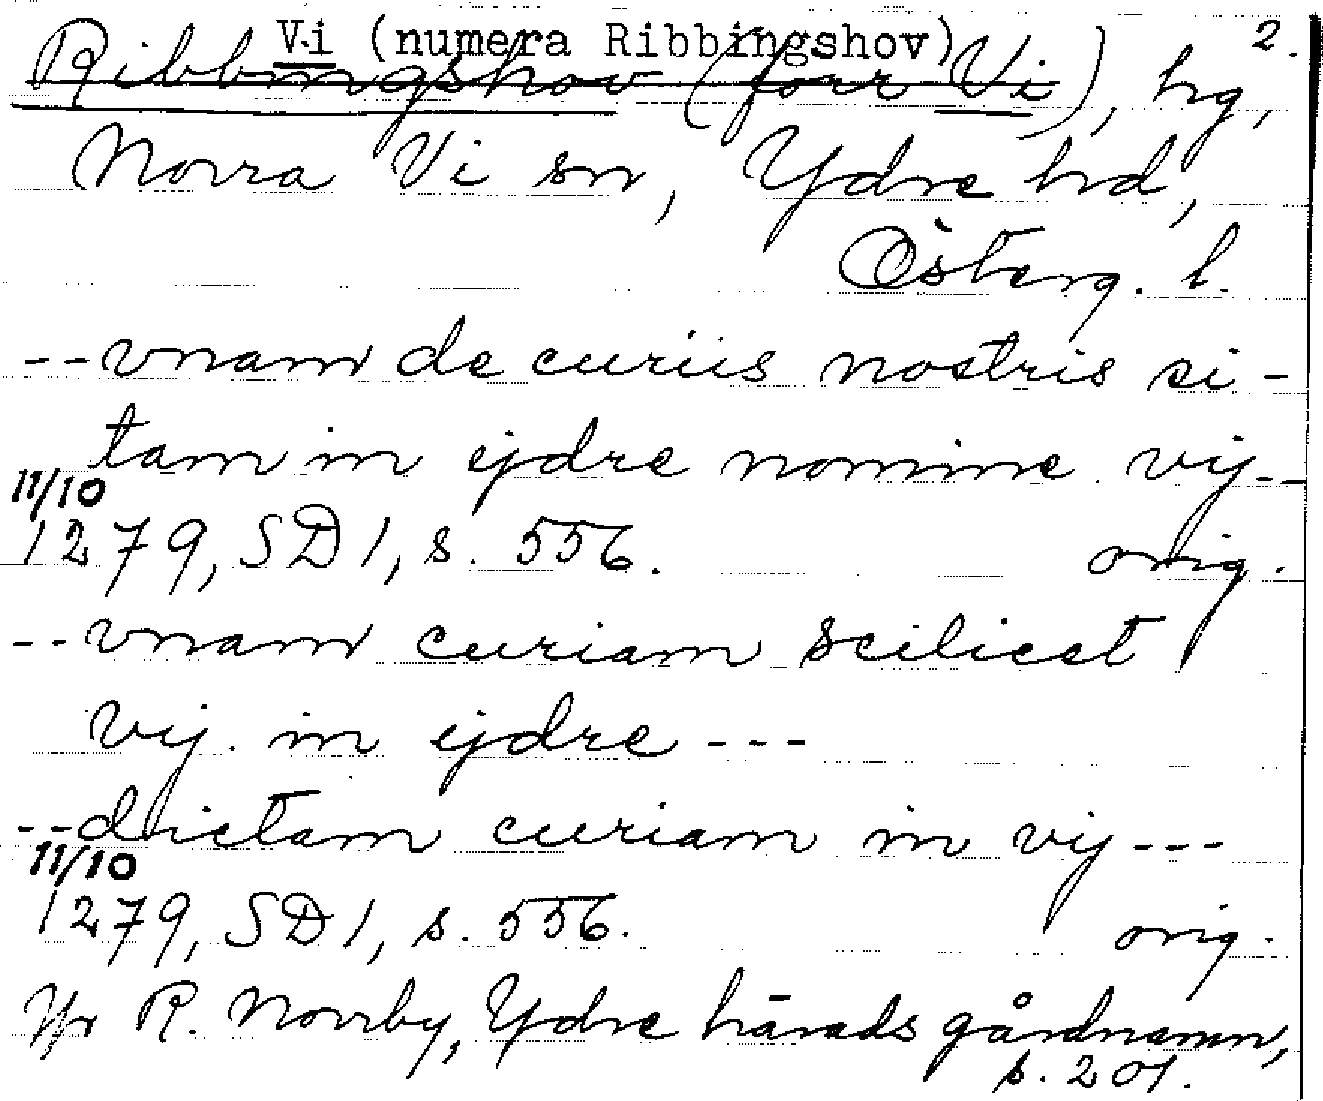 Vi (numera Ribbingshov) 2.
Ribbingshov (förr Vi), hg,
Norra Vi sn, Ydre hd,
Österg. l.
--vnam de curiis nostris si-
tam in ejdre nomine vij--
11/10
1279, SD 1, s. 556. orig.
--vnam curiam scilicet
vij. in ejdre ---
--dictam curiam in vij---
11/10
1279, SD 1, s. 556. orig.
Jfr R. Norrby, Ydre härads gårdnamn,
s. 201.